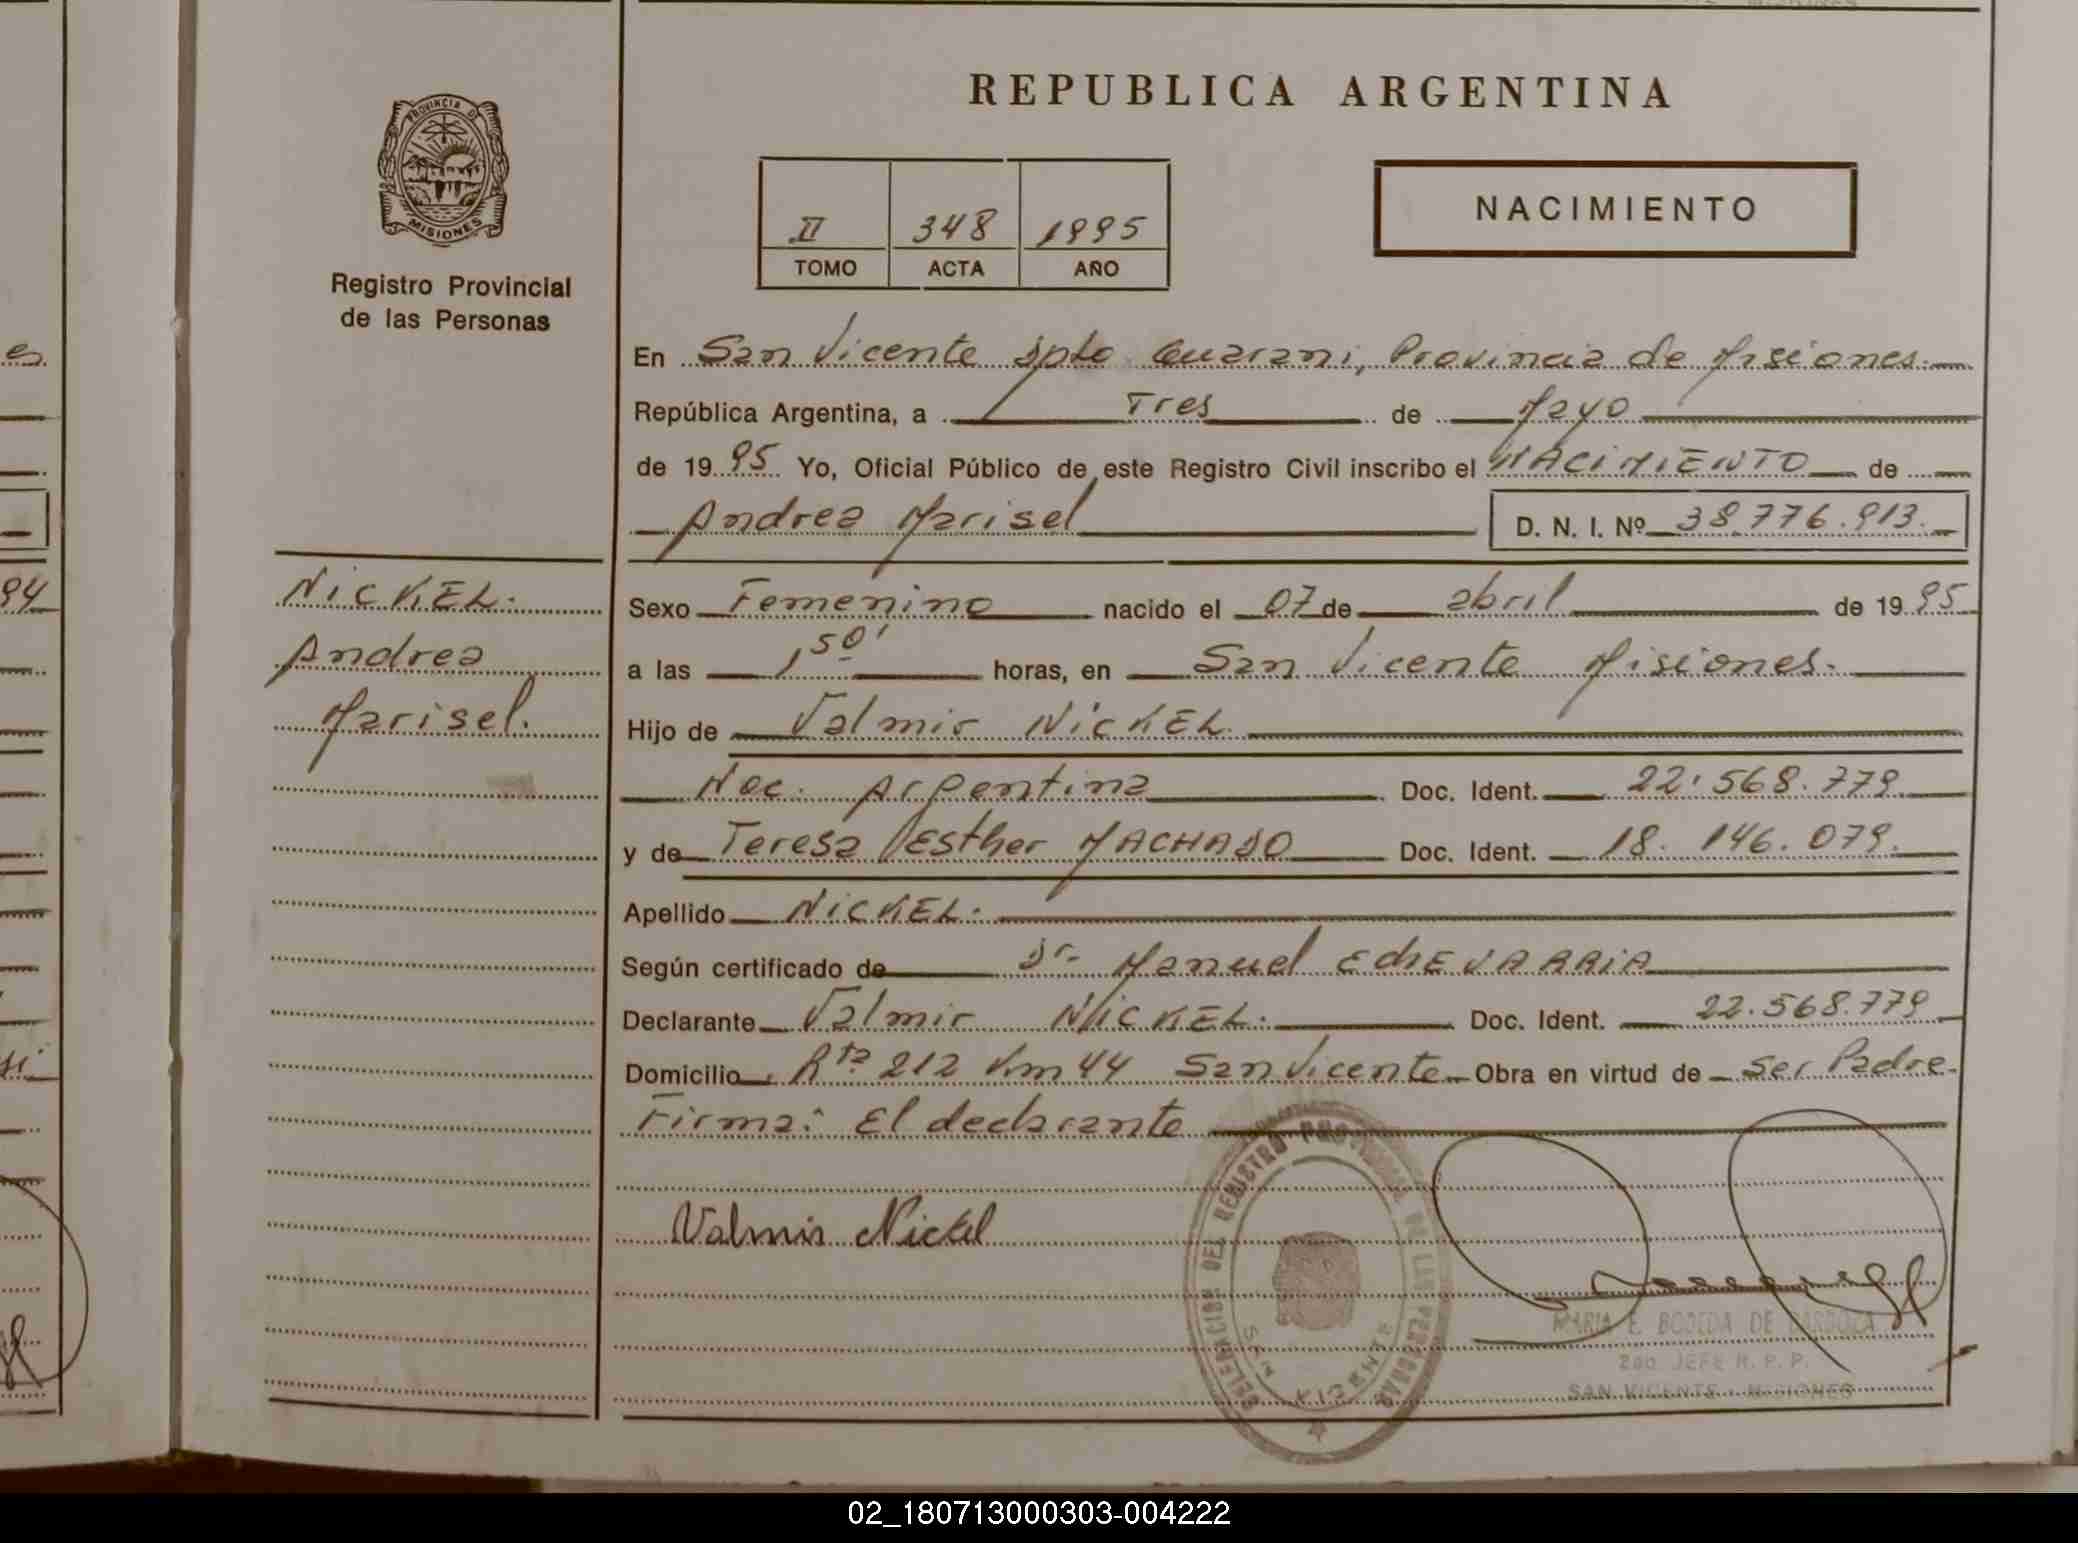 PROVINCIA DE
MISIONES
Registro Provincial
de las Personas
NICKEL.
Andrea
Marisel.
REPUBLICA ARGENTINA
II 348 1995
TOMO ACTA AÑO
NACIMIENTO
En San Vicente Dpto Guarani, Provincia de Misiones.
República Argentina, a Tres de Mayo
de 1995 Yo, Oficial Público de este Registro Civil inscribo el NACIMIENTO de
Andrea Marisel D. N. I. Nº 38.776.913.
Sexo Femenino nacido el 07 de abril de 1995
a las 1,50' horas, en San Vicente Misiones.
Hijo de Valmir NICKEL
Nac. Argentina Doc. Ident. 22.568.779.
y de Teresa Esther MACHADO Doc. Ident. 18.146.079.
Apellido NICKEL.
Según certificado de Dr. Manuel EcheVARRIA
Declarante Valmir NICKEL. Doc. Ident. 22.568.779
Domicilio Rta 212 Km 44 San Vicente Obra en virtud de ser Padre.
Firma: El declarante
Valmir Nickel
DELEGACION DEL REGISTRO PROVINCIAL DE LAS PERSONAS
SAN VICENTE
MARIA E. BODEDA DE BARBOZA
2do JEFE R. P. P.
SAN VICENTE - MISIONES
es
94
si
02_180713000303-004222